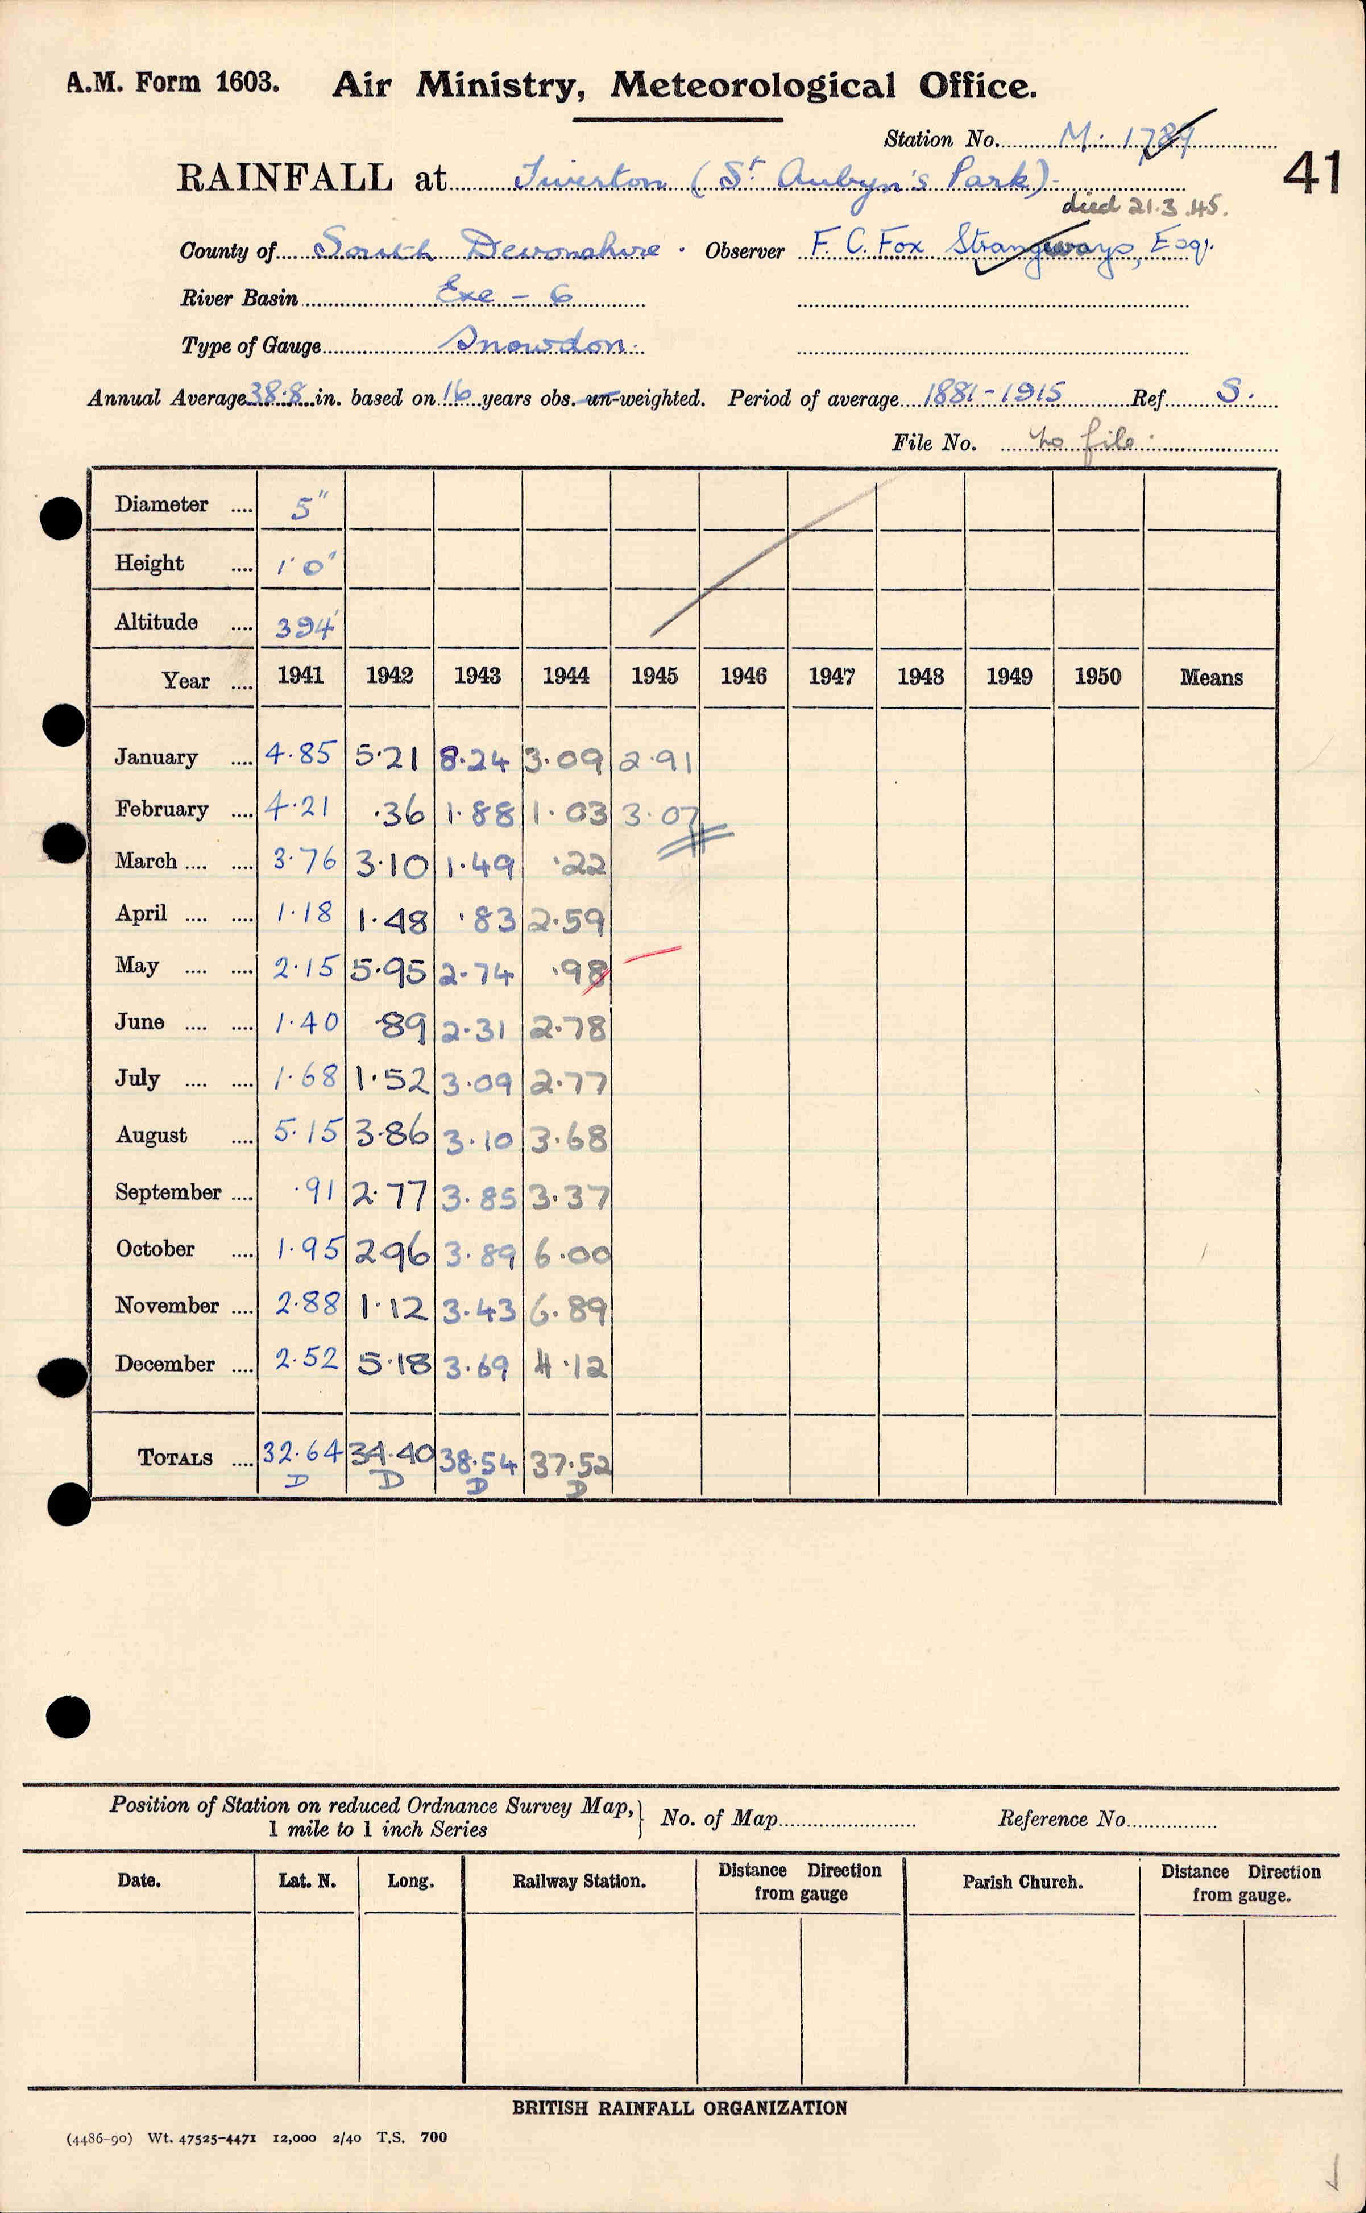 A.M. Form 1603. Air Ministry, Meteorological Office.
Station No. M. 1789
41
RAINFALL at Tiverton (St Aubyn's Park).
died 21.3.45.
County of South Devonshire. Observer F. C. Fox Strangways, Esq.
River Basin Exe - 6
Type of Gauge Snowdon.
Annual Average 38.8 in. based on 16 years obs. un-weighted. Period of average 1881-1915 Ref S.
File No. no file.
Diameter .... 5"
Height .... 1'0"
Altitude .... 394'
Year .... 1941 1942 1943 1944 1945 1946 1947 1948 1949 1950 Means
January .... 4.85 5.21 8.24 3.09 2.91
February .... 4.21 .36 1.88 1.03 3.07
March .... .... 3.76 3.10 1.49 .22
April .... .... 1.18 1.48 .83 2.59
May .... .... 2.15 5.95 2.74 .98
June .... .... 1.40 .89 2.31 2.78
July .... .... 1.68 1.52 3.09 2.77
August .... 5.15 3.86 3.10 3.68
September .... .91 2.77 3.85 3.37
October .... 1.95 2.96 3.89 6.00
November .... 2.88 1.12 3.43 6.89
December .... 2.52 5.18 3.69 4.12
TOTALS .... 32.64 34.40 38.54 37.52
D D D D
Position of Station on reduced Ordnance Survey Map, 1 mile to 1 inch Series } No. of Map Reference No.
Date. Lat. N. Long. Railway Station. Distance Direction from gauge Parish Church. Distance Direction from gauge.
BRITISH RAINFALL ORGANIZATION
(4486-90) Wt. 47525-4471 12,000 2/40 T.S. 700